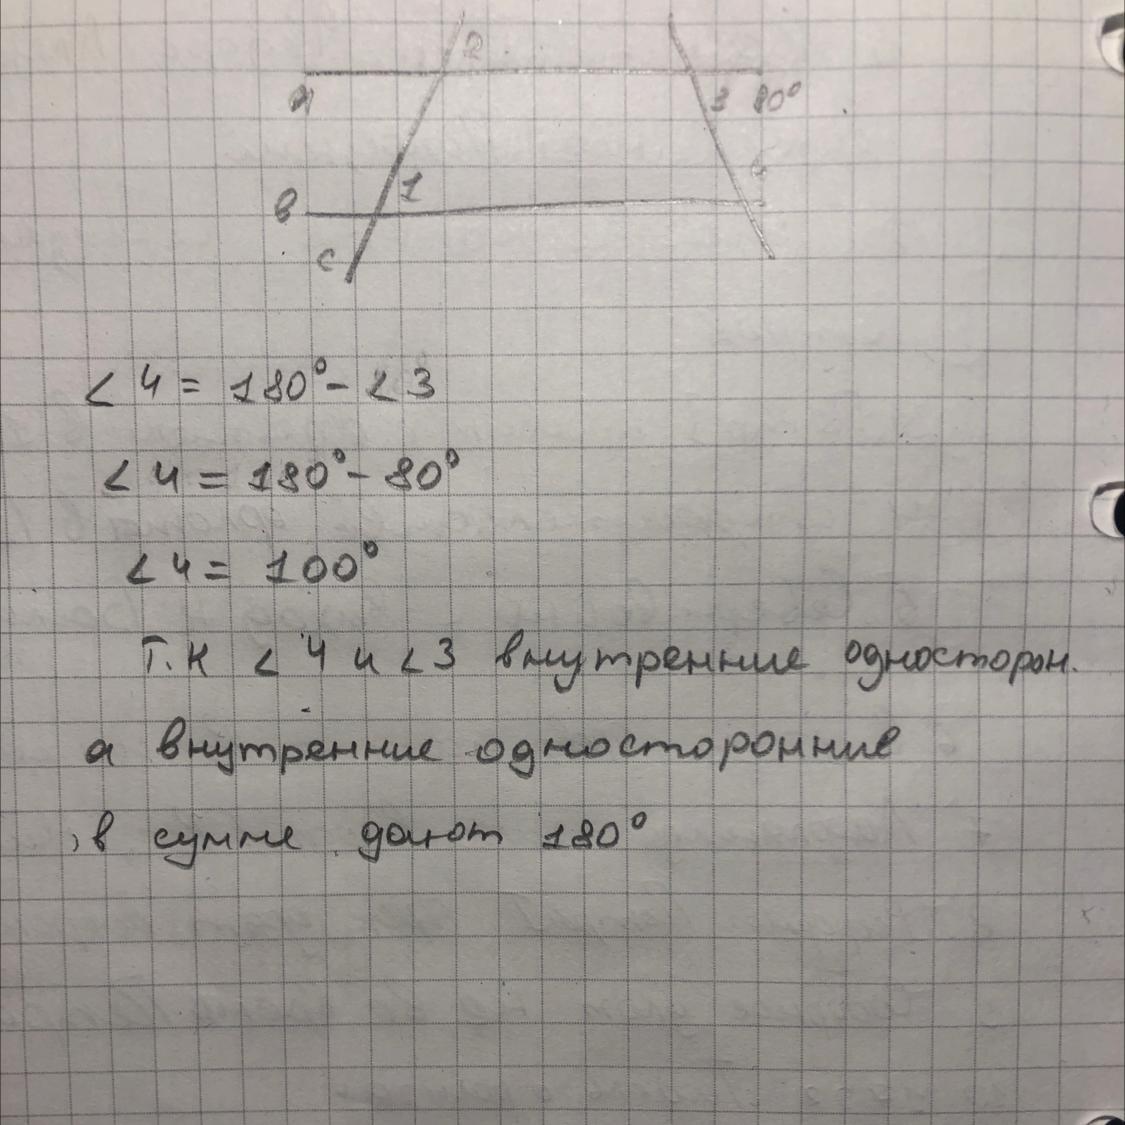 2
a
3 80°
1
в
c
∠ 4 = 180° - ∠ 3
∠ 4 = 180° - 80°
∠ 4 = 100°
Т.к ∠ 4 и ∠ 3 внутренние односторон.
а внутренние односторонние
в сумме дают 180°